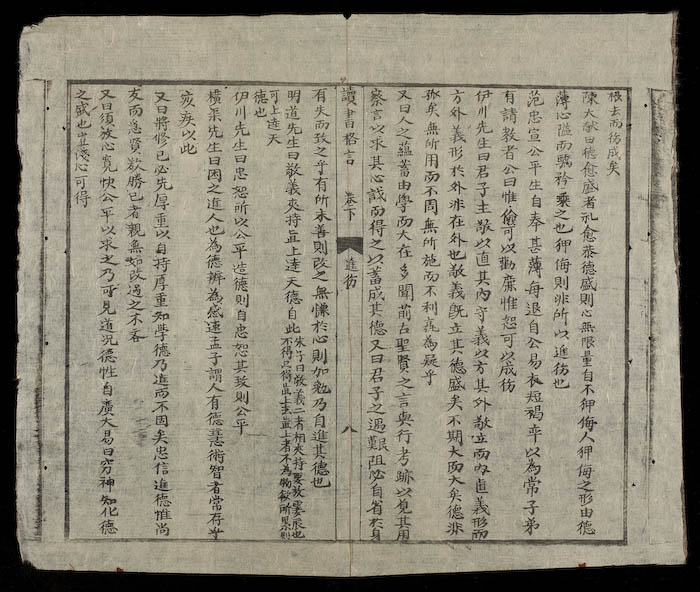 根去而德成矣
陳大猷曰德愈盛者礼愈恭德盛則心無限量自不狎侮人狎侮之形由德
薄心隘而驕矜乘之也狎侮則非所以進德也
范忠宣公平生自奉甚薄每退自公易衣短褐率以為常子弟
有請教者公曰惟儉可以助廉惟恕可以成德
伊川先生曰君子主敬以直其內守義以方其外敬立而內直義形而
方外義形於外非在外也敬義既立其德盛矣不期大而大矣德非
孤矣無所用而不周無所施而不利孰為疑乎
又曰人之蘊蓄由學而大在多聞前古聖賢之言與行考跡以觀其用
察言以求其心識而得之以蓄成其德又曰君子之遇艱阻必自省於身
讀書格言 卷下 進德 八
有失而致之乎有所未善則改之無慊於心則加勉乃自進其德也
明道先生曰敬義夾持直上達天德自此
朱子曰敬義二者相夾持要放霎辰也
不得只得直上去直上者不為物欲所累則
可上達天
德也
伊川先生曰忠恕所以公平造德則自忠恕其致則公平
橫渠先生曰困之進人也為德辨為感速孟子謂人有德慧術智者常存乎
疢疾以此
又曰將修己必先厚重以自持厚重知學德乃進而不固矣忠信進德惟尚
友而急賢欲勝己者親無如改過之不吝
又曰須放心寬快公平以求之乃可見道況德性自廣大易曰窮神知化德
之盛也豈淺心可得